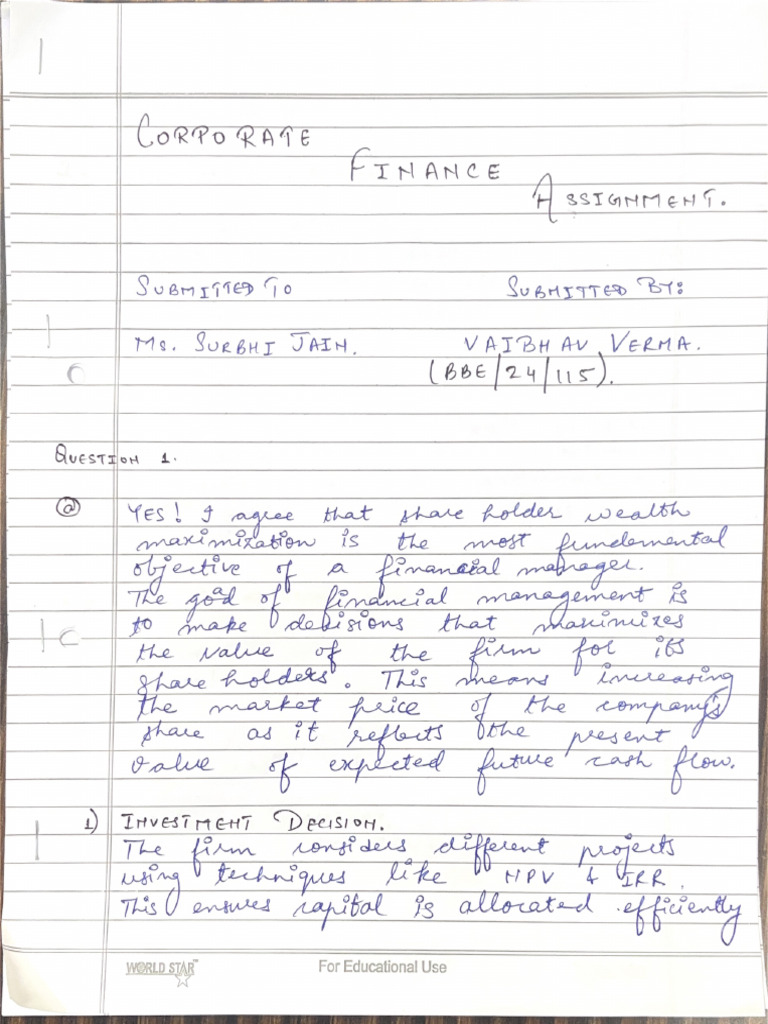 CORPORATE
FINANCE
ASSIGNMENT.
SUBMITTED TO SUBMITTED BY:
MS. SURBHI JAIN. VAIBHAV VERMA.
(BBE/24/115).
QUESTION 1.
(a) YES! I agree that share holder wealth
maximization is the most fundemental
objective of a financial manager.
The goal of financial management is
to make decisions that maximizes
the value of the firm for its
share holders. This means increasing
the market price of the company's
share as it reflects the present
value of expected future cash flow.
1) INVESTMENT DECISION.
The firm considers different projects
using techniques like NPV & IRR.
This ensures capital is allocated efficiently
WORLD STAR™ For Educational Use